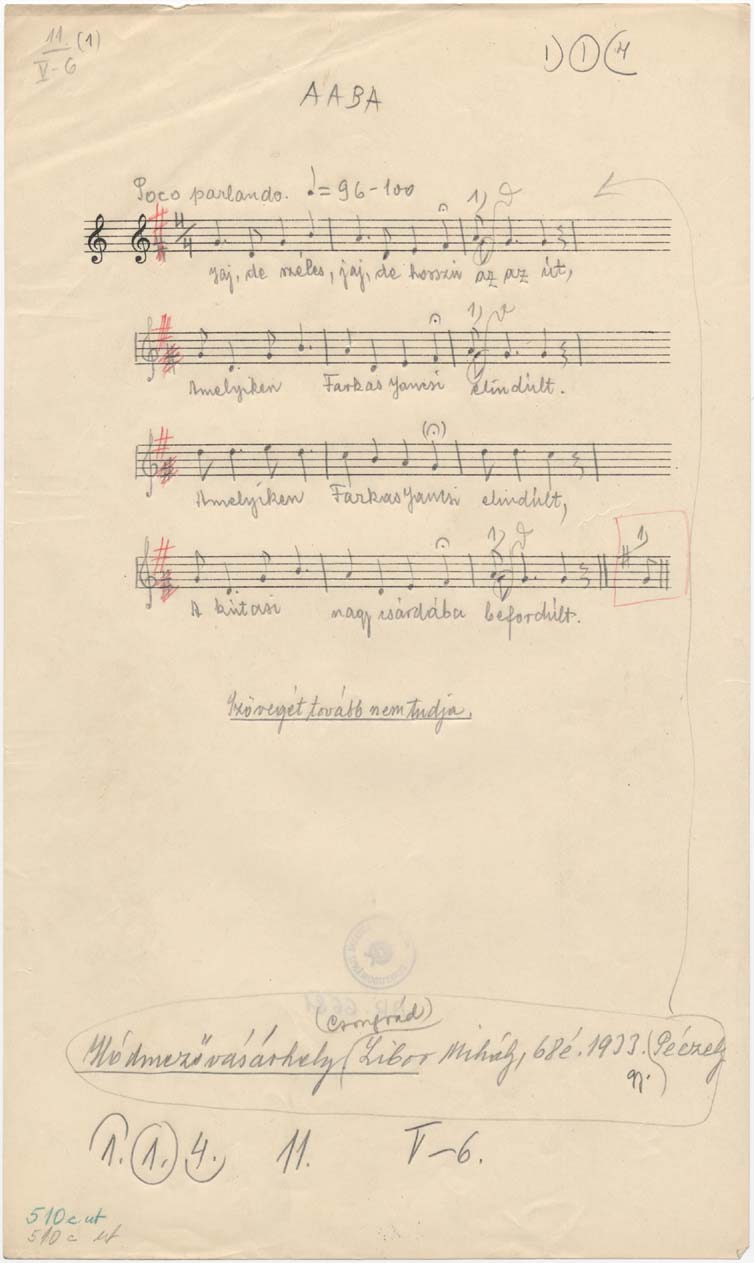 11. (1)
V-6
1) (1) (4
AABA
Poco parlando. ♩= 96-100
1)
4/4
Jaj, de széles, jaj, de hosszú az az út,
1)
Amelyiken Farkas Jancsi elindúlt.
Amelyiken Farkas Jancsi elindúlt,
1) 1)
A kútasi nagy csárdába befordúlt.
Szövegét tovább nem tudja.
(Csongrád)
Hódmezővásárhely (Libor Mihály, 68 é. 1933. (Péczely
gy.)
1. (1.) 4. 11. V-6.
510 c ut
510 c ut